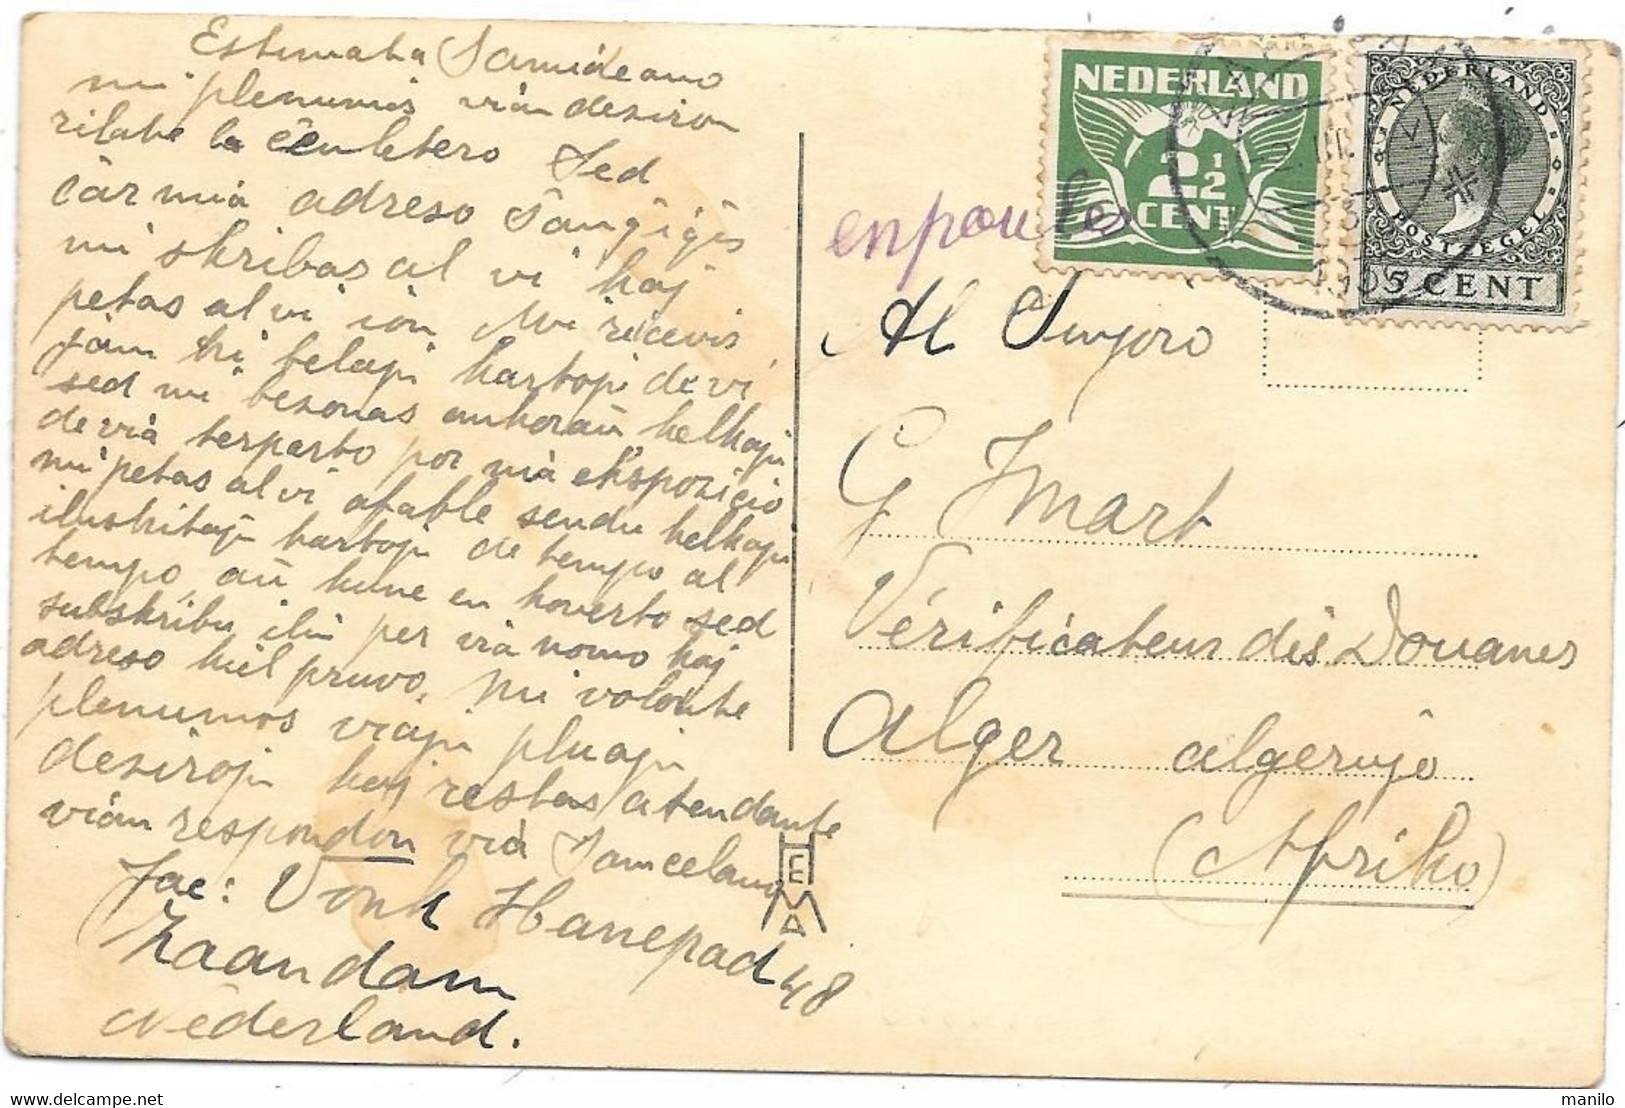 Estimata Samideano
mi plenumis vian deziron
rilate la ĉeuletero Sed
ĉar mia adreso ŝanĝiĝis
mi skribas al vi kaj
petas al vi ion Mi ricevis
jam tri belajn kartojn de vi
sed mi bezonas ankoraŭ kelkajn
de via terparto por mia ekspozicio
mi petas al vi afable sendu kelkajn
ilustritajn kartojn de tempo al
tempo, aŭ kune en koverto sed
subskribu ilin per via nomo kaj
adreso kiel pruvo, Mi volonte
plenumos viajn pluajn
dezirojn kaj restas atendante
vian respondon via Samcelano
Jac: Vonk Hanepad 48
Zaandam
Nederland.
HEMA
NEDERLAND
2 1/2
CENT
NEDERLAND
POSTZEGEL
5 CENT
1935
Al Sinjoro
G Imart
Vérificateur des Douanes
Alger algerujo
(Afriko)
delcampe.net
manilo